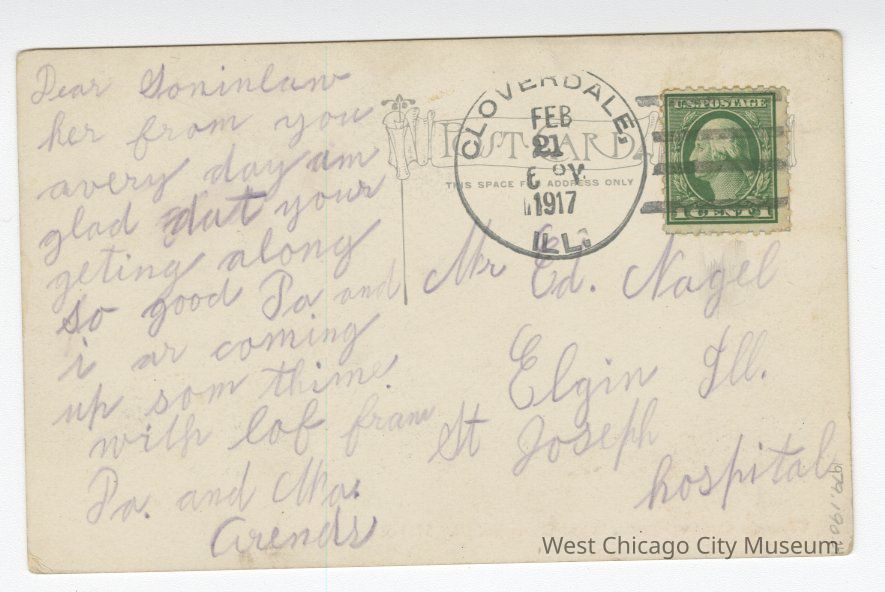 Dear Soninlaw
her from you
avery day am
glad dat your
geting along
so good Pa and
i ar coming
up som thime
with lof fram
Pa. and Ma.
Arends
POST CARD
THIS SPACE FOR ADDRESS ONLY
CLOVERDALE,
FEB
21
1917
ILL.
U.S. POSTAGE
1 CENT 1
Mr Ed. Nagel
Elgin Ill.
St Joseph
hospital
West Chicago City Museum